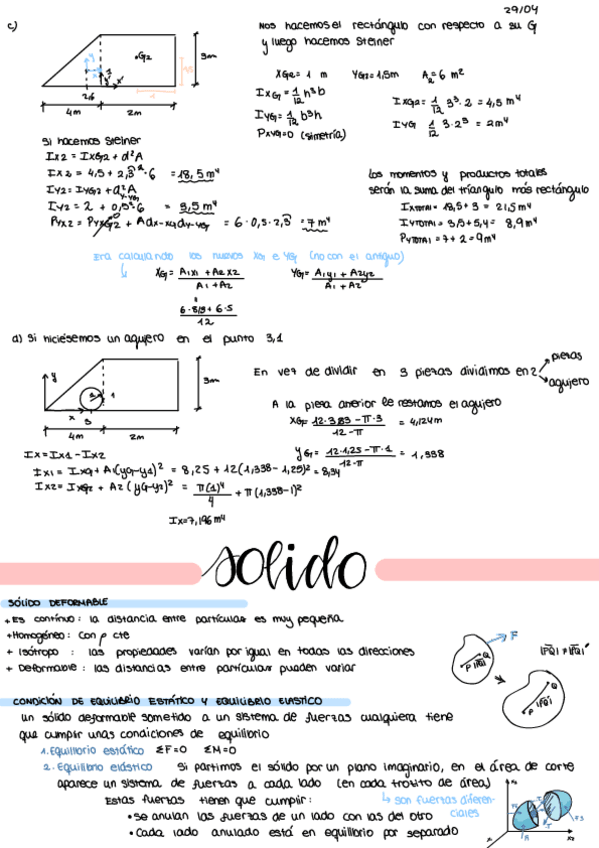 29/04
c)
Nos hacemos el rectángulo con respecto a su G
y luego hacemos Steiner
·G2
3m
4m
2m
XG2 = 1 m YG2 = 1,5m A2 = 6 m²
IXG = 1/12 h³b
IXG2 = 1/12 3³·2 = 4,5 m⁴
IYG = 1/12 b³h
IYG 1/12 3·2³ = 2m⁴
PXYG = 0 (simetría)
Si hacemos Steiner
IX2 = IXG2 + d²A
IX2 = 4,5 + 2,3²·6 = 18,5 m⁴
IY2 = IYG2 + d²A
IY2 = 2 + 0,5²·6 = 3,5m⁴
PYX2 = PYXG2 + Adx-xGdy-yG = 6·0,5·2,3 = 7 m⁴
Los momentos y productos totales
serán la suma del triángulo más rectángulo
IXTOTAL = 18,5 + 3 = 21,5m⁴
IYTOTAL = 3,5 + 5,4 = 8,9m⁴
PXYTOTAL = 7 + 2 = 9m⁴
Era calculando los nuevos XG e YG (no con el antiguo)
XG = A1X1 + A2X2 / A1 + A2
YG = A1Y1 + A2Y2 / A1 + A2
12
d) Si hiciésemos un agujero en el punto 3,1
y
1
3m
x
3
4m
2m
En vez de dividir en 3 piezas dividimos en 2
piezas
agujero
A la pieza anterior le restamos el agujero
XG = 12·3,83 - π·3 / 12 - π = 4,124m
YG = 12·1,25 - π·1 / 12 - π = 1,338
IX = IX1 - IX2
IX1 = IXG + A1(yG-y1)² = 8,25 + 12(1,338 - 1,25)² = 8,34
IX2 = IXG2 + A2(yG-y2)² = π(1)⁴/4 + π(1,338-1)²
IX = 7,196m⁴
solido
SÓLIDO DEFORMABLE
+ Es continuo: la distancia entre partículas es muy pequeña
+ Homogéneo: Con ρ cte
+ Isótropo : las propiedades varían por igual en todas las direcciones
+ Deformable : las distancias entre partículas pueden variar
F
P
Q
|PQ|
|PQ| ≠ |PQ|'
P
Q
|PQ|'
CONDICIÓN DE EQUILIBRIO ESTÁTICO Y EQUILIBRIO ELÁSTICO
Un sólido deformable sometido a un sistema de fuerzas cualquiera tiene
que cumplir unas condiciones de equilibrio
1. Equilibrio estático ΣF=0 ΣM=0
2. Equilibrio elástico Si partimos el sólido por un plano imaginario, en el área de corte
aparece un sistema de fuerzas a cada lado (en cada trozito de área)
Estas fuerzas tienen que cumplir:
son fuerzas diferenciales
• Se anulan las fuerzas de un lado con las del otro
• Cada lado anulado está en equilibrio por separado